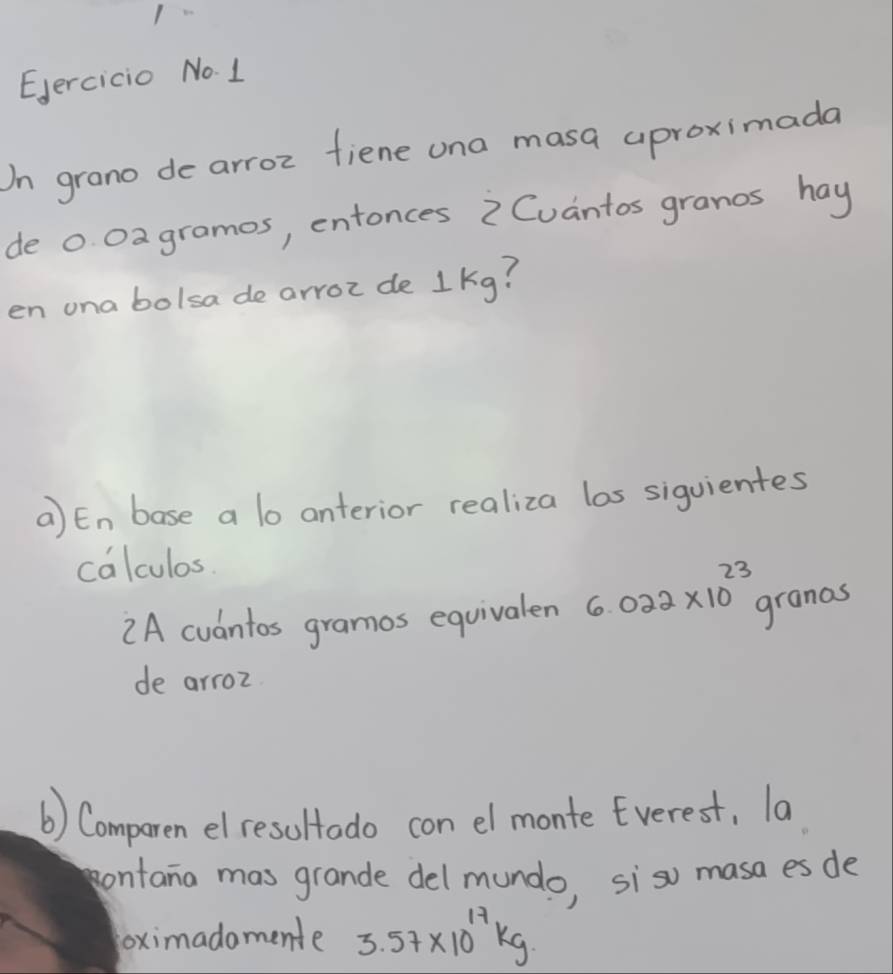 Ejercicio No. 1
Un grano de arroz tiene una masa aproximada
de 0.02 gramos, entonces ¿Cuántos granos hay
en una bolsa de arroz de 1 Kg?
a) En base a lo anterior realiza los siguientes
cálculos.
¿A cuántos gramos equivalen 6.022 x 10²³ granos
de arroz.
b) Comparen el resultado con el monte Everest, la
montaña mas grande del mundo, si su masa es de
oximadamente 3.57 x 10¹⁷ Kg.